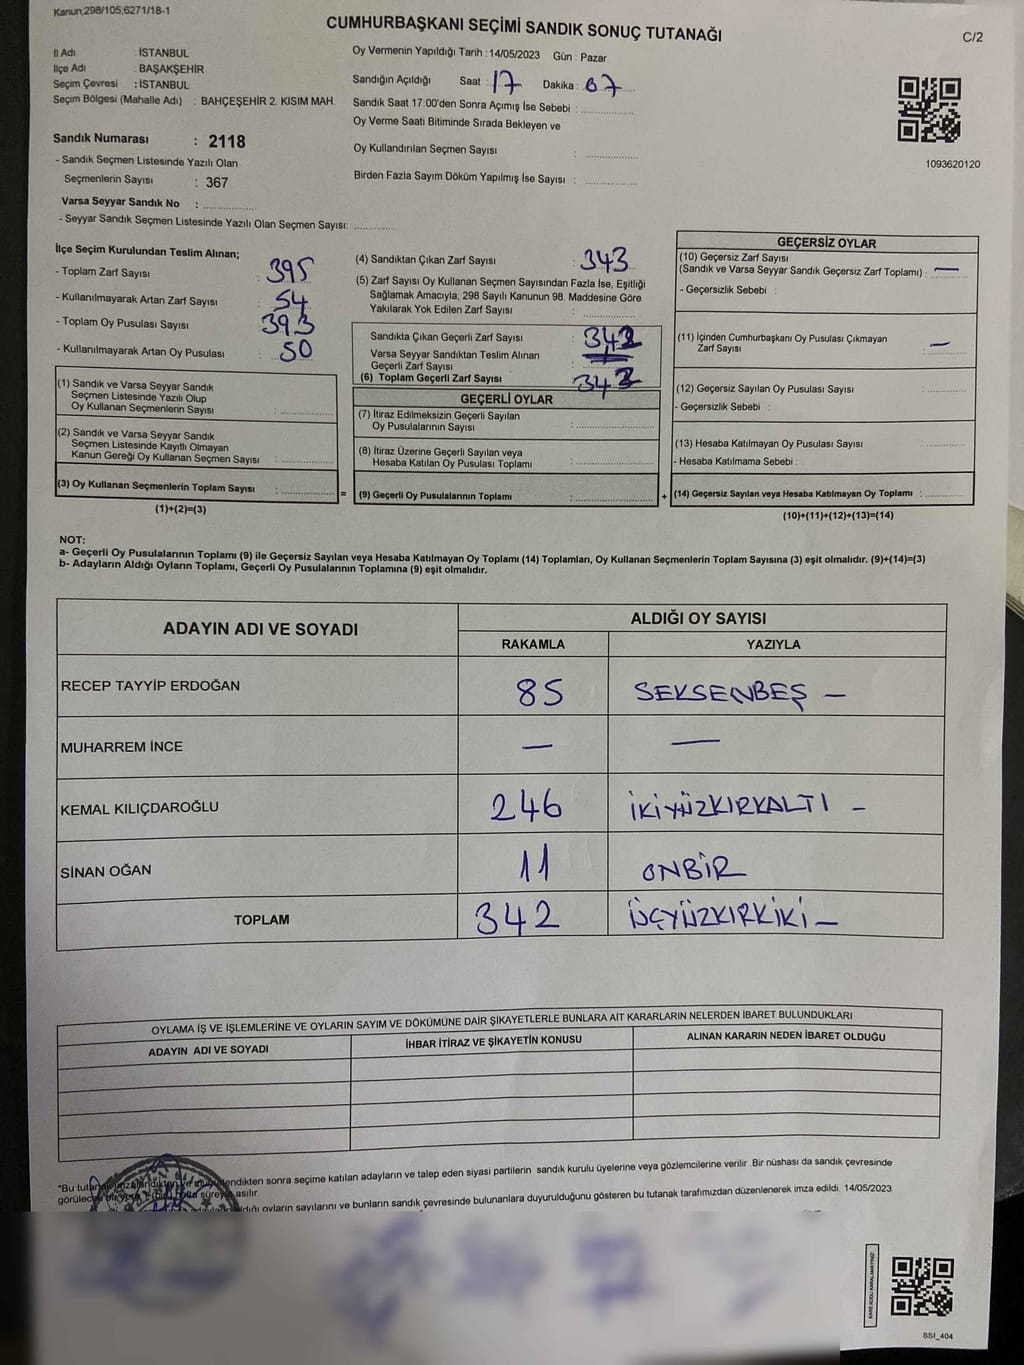 Kanun,298/105,6271/18-1
CUMHURBAŞKANI SEÇİMİ SANDIK SONUÇ TUTANAĞI
C/2
İl Adı : İSTANBUL
İlçe Adı : BAŞAKŞEHİR
Seçim Çevresi : İSTANBUL
Seçim Bölgesi (Mahalle Adı) : BAHÇEŞEHİR 2. KISIM MAH.
Sandık Numarası : 2118
- Sandık Seçmen Listesinde Yazılı Olan
Seçmenlerin Sayısı : 367
Varsa Seyyar Sandık No : ..............
- Seyyar Sandık Seçmen Listesinde Yazılı Olan Seçmen Sayısı: ............
Oy Vermenin Yapıldığı Tarih : 14/05/2023 Gün : Pazar
Sandığın Açıldığı Saat : 17 Dakika : 07
Sandık Saat 17:00'den Sonra Açımış İse Sebebi : ..............
Oy Verme Saati Bitiminde Sırada Bekleyen ve
Oy Kullandırılan Seçmen Sayısı : ..............
Birden Fazla Sayım Döküm Yapılmış İse Sayısı : ..............
1093620120
İlçe Seçim Kurulundan Teslim Alınan;
- Toplam Zarf Sayısı : 395
- Kullanılmayarak Artan Zarf Sayısı : 54
- Toplam Oy Pusulası Sayısı : 393
- Kullanılmayarak Artan Oy Pusulası : 50
(1) Sandık ve Varsa Seyyar Sandık
Seçmen Listesinde Yazılı Olup
Oy Kullanan Seçmenlerin Sayısı : ..............
(2) Sandık ve Varsa Seyyar Sandık
Seçmen Listesinde Kayıtlı Olmayan
Kanun Gereği Oy Kullanan Seçmen Sayısı : ..............
(3) Oy Kullanan Seçmenlerin Toplam Sayısı : ..............
(1)+(2)=(3)
=
(4) Sandıktan Çıkan Zarf Sayısı : 343
(5) Zarf Sayısı Oy Kullanan Seçmen Sayısından Fazla İse, Eşitliği
Sağlamak Amacıyla; 298 Sayılı Kanunun 98. Maddesine Göre
Yakılarak Yok Edilen Zarf Sayısı : ..............
Sandıkta Çıkan Geçerli Zarf Sayısı : 342
Varsa Seyyar Sandıktan Teslim Alınan
Geçerli Zarf Sayısı :
(6) Toplam Geçerli Zarf Sayısı : 342
GEÇERLİ OYLAR
(7) İtiraz Edilmeksizin Geçerli Sayılan
Oy Pusulalarının Sayısı : ..............
(8) İtiraz Üzerine Geçerli Sayılan veya
Hesaba Katılan Oy Pusulası Toplamı : ..............
(9) Geçerli Oy Pusulalarının Toplamı : ..............
+
GEÇERSİZ OYLAR
(10) Geçersiz Zarf Sayısı
(Sandık ve Varsa Seyyar Sandık Geçersiz Zarf Toplamı) : —
- Geçersizlik Sebebi :
(11) İçinden Cumhurbaşkanı Oy Pusulası Çıkmayan
Zarf Sayısı : —
(12) Geçersiz Sayılan Oy Pusulası Sayısı : ............
- Geçersizlik Sebebi :
(13) Hesaba Katılmayan Oy Pusulası Sayısı : ............
- Hesaba Katılmama Sebebi :
(14) Geçersiz Sayılan veya Hesaba Katılmayan Oy Toplamı : ............
(10)+(11)+(12)+(13)=(14)
NOT:
a- Geçerli Oy Pusulalarının Toplamı (9) ile Geçersiz Sayılan veya Hesaba Katılmayan Oy Toplamı (14) Toplamları, Oy Kullanan Seçmenlerin Toplam Sayısına (3) eşit olmalıdır. (9)+(14)=(3)
b- Adayların Aldığı Oyların Toplamı, Geçerli Oy Pusulalarının Toplamına (9) eşit olmalıdır.
ADAYIN ADI VE SOYADI
ALDIĞI OY SAYISI
RAKAMLA YAZIYLA
RECEP TAYYİP ERDOĞAN 85 SEKSENBEŞ —
MUHARREM İNCE — —
KEMAL KILIÇDAROĞLU 246 İKİYÜZKIRKALTI –
SİNAN OĞAN 11 ONBİR
TOPLAM 342 ÜÇYÜZKIRKİKİ —
OYLAMA İŞ VE İŞLEMLERİNE VE OYLARIN SAYIM VE DÖKÜMÜNE DAİR ŞİKAYETLERLE BUNLARA AİT KARARLARIN NELERDEN İBARET BULUNDUKLARI
ADAYIN ADI VE SOYADI İHBAR İTİRAZ VE ŞİKAYETİN KONUSU ALINAN KARARIN NEDEN İBARET OLDUĞU
"Bu tutanak imzalandıktan ve mühürlendikten sonra seçime katılan adayların ve talep eden siyasi partilerin sandık kurulu üyelerine veya gözlemcilerine verilir .Bir nüshası da sandık çevresinde
görülecek bir yere 1 (bir) hafta süreyle asılır.
aldığı oyların sayılarını ve bunların sandık çevresinde bulunanlara duyurulduğunu gösteren bu tutanak tarafımızdan düzenlenerek imza edildi. 14/05/2023
SSI_404